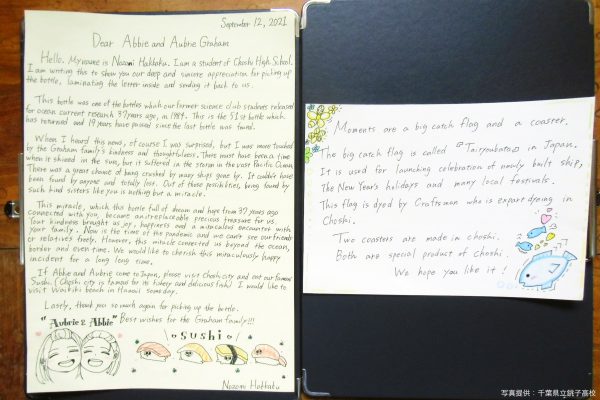 September 12, 2021
Dear Abbie and Aubrie Graham
Hello. My name is Nozomi Hokkaku. I am a student of Choshi High School.
I am writing this to show you our deep and sincere appreciation for picking up
the bottle, laminating the letter inside and sending it back to us.
This bottle was one of the bottles which our former science club students released
for ocean current research 37 years ago, in 1984. This is the 51st bottle which
has returned and 19 years have passed since the last bottle was found.
When I heard this news, of course I was surprised, but I was more touched
by the Graham family's kindness and thoughtfulness. There must have been a time
when it shined in the sun, but it suffered in the storm in the vast Pacific Ocean.
There was a great chance of being crushed by many ships goes by. It couldn't have
been found by anyone and totally lost. Out of these possibilities, being found by
such kind sisters like you is nothing but a miracle.
This miracle, which this bottle full of dream and hope from 37 years ago
connected with you, became an irreplaceable precious treasure for us.
Your kindness brought us joy, happiness and a miraculous encounter with
your family. Now is the time of the pandemic and we can't see our friends
or relatives freely. However, this miracle connected us beyond the ocean,
border and even time. We would like to cherish this miraculously happy
incident for a long long time.
If Abbie and Aubrie come to Japan, please visit Choshi city and eat our famous
Sushi. (Choshi city is famous for its fishery and delicious fish) I would like to
visit Waikiki beach in Hawaii someday.
Lastly, thank you so much again for picking up the bottle.
Best wishes for the Graham family!!!
"Aubrie & Abbie"
sushi
Nozomi Hokkaku
Moments are a big catch flag and a coaster.
The big catch flag is called 『Tairyoubata』 in Japan.
It is used for launching celebration of newly built ship,
The New Year's holidays and many local festivals.
This flag is dyed by Craftsman who is expart dyeing in
Choshi.
Two coasters are made in choshi.
Both are special product of Choshi.
We hope you like it!
写真提供：千葉県立銚子高校